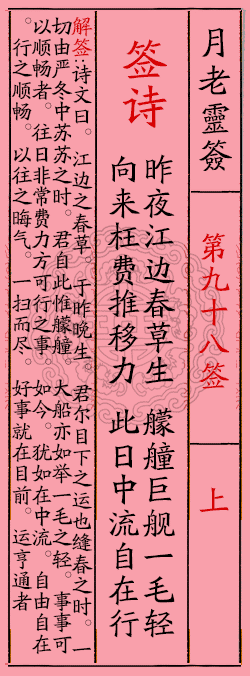 月老靈簽
第九十八签
上
签诗
昨夜江边春草生 艨艟巨舰一毛轻
向来枉费推移力 此日中流自在行
解签:诗文曰。江边之春草。于昨晚生。君尔目下之运也缝春之时。一
切由严冬中苏苏之时。君自此惟艨艟大船亦如举一毛之轻。事事可
以顺畅者。往日非常费力方可行之事。如今。犹如在中流。自由自在
。行之顺畅。以往之晦气。一扫而尽。好事就在目前。运亨通者